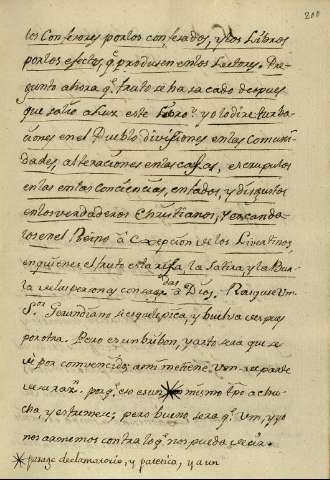 200
los Confesores por los confesados, y los Libros
por los efectos q.e producen en los Lectores. Pre-
gunto ahora q.e fruto se ha sacado despues
que salió a luz este Libro? yo lo diré: turba-
ciones en el Pueblo divisiones en las Comuni-
dades, alteraciones en las casas, escrupulos
en las conciencias, enfados, y disgustos
en los verdaderos Christianos, y escanda-
los en el Reino à excepcion de los Libertinos
en quienes el fruto esta risa, la satira y la Bur-
la de las personas consagradas à Dios. Rasguese Un
S.r Gerundiano si es que le pica, y buelva despues
por otra. Pero es un bribon, y arto sera que se
dé por convencido;
q.e es un mismo tpo achu-
cha, y estremece; pero bueno, sera q.e Um, y yo
nos armemos contra lo q.e nos pueda decir.
* parage declamatorio, y patetico, y a un